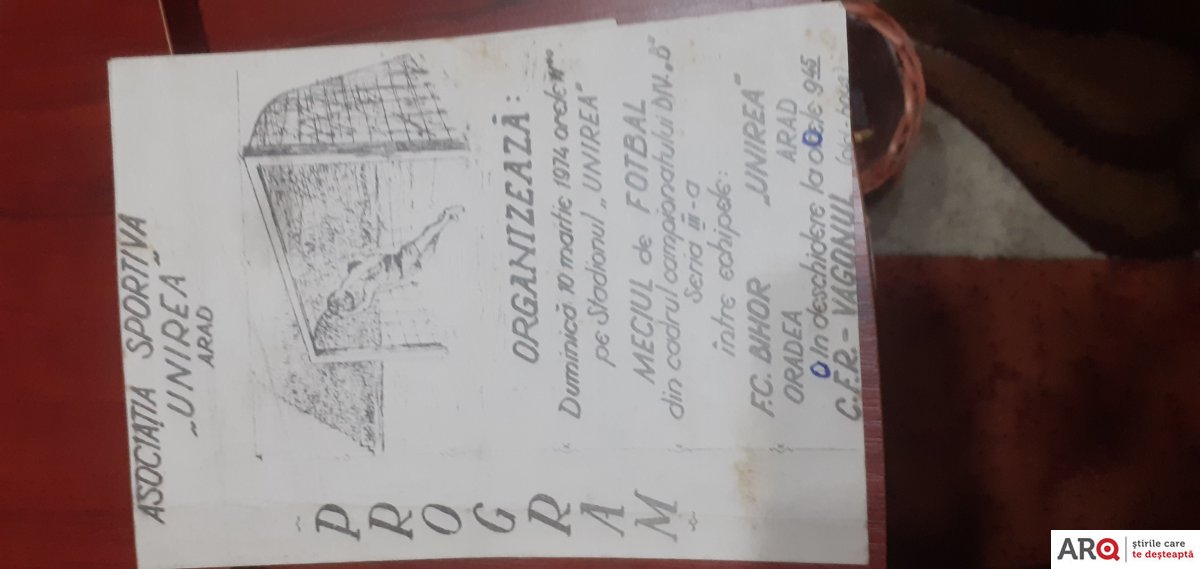 ASOCIAȚIA SPORTIVA
„UNIREA”
ARAD
PROGRAM
ORGANIZEAZĂ:
Duminică 10 martie 1974 orele 11
pe Stadionul „UNIREA”
MECIUL de FOTBAL
din cadrul campionatului DIV. „B”
Seria III-a
între echipele:
F.C. BIHOR „UNIREA”
ORADEA ARAD
O In deschidere la orele 9 45
C.F.R. - VAGONUL
ARQ știrile care
te deșteaptă